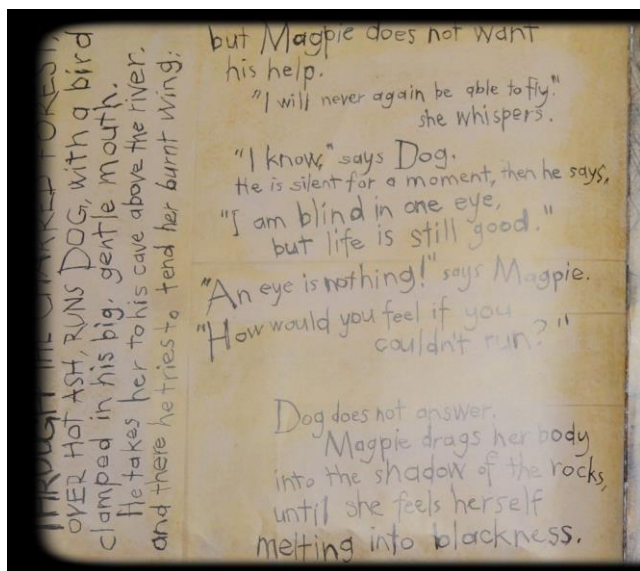 THROUGH THE CHARRED FOREST,
OVER HOT ASH, RUNS DOG, with a bird
clamped in his big, gentle mouth.
He takes her to his cave above the river,
and there he tries to tend her burnt wing:
but Magpie does not want
his help.
"I will never again be able to fly."
she whispers.
"I know," says Dog.
He is silent for a moment, then he says,
"I am blind in one eye,
but life is still good."
"An eye is nothing!" says Magpie.
"How would you feel if you
couldn't run?"
Dog does not answer.
Magpie drags her body
into the shadow of the rocks,
until she feels herself
melting into blackness.